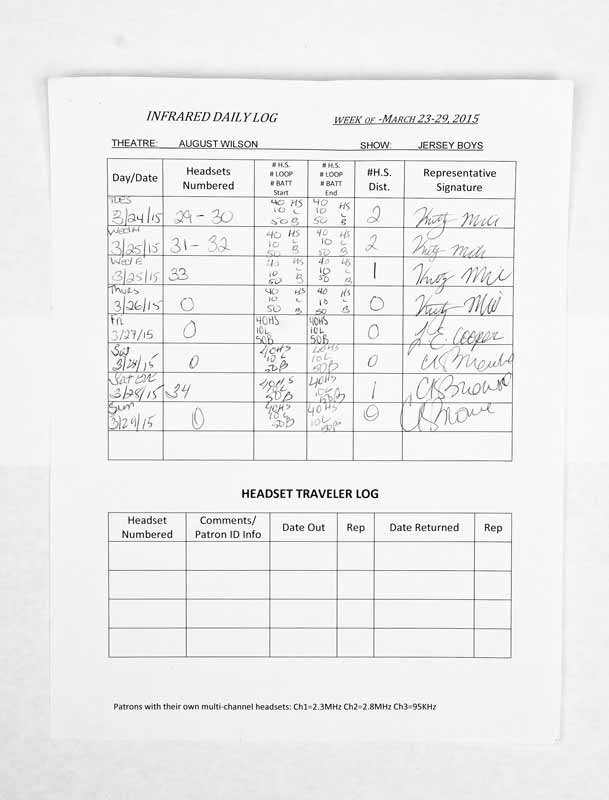 INFRARED DAILY LOG WEEK OF -MARCH 23-29, 2015
THEATRE: AUGUST WILSON SHOW: JERSEY BOYS
Day/Date Headsets Numbered # H.S. # LOOP # BATT Start # H.S. # LOOP # BATT End #H.S. Dist. Representative Signature
TUES 3/24/15 29-30 40 HS 10 L 50 B 40 HS 10 L 50 B 2
3/25/15 31-32 40 HS 10 L 50 B 40 HS 10 L 50 B 2
WED E 3/25/15 33 40 HS 10 L 50 B 40 HS 10 L 50 B 1
THURS 3/26/15 0 40 HS 10 L 50 B 40 HS 10 L 50 B 0
Fri 3/27/15 0 40HS 10L 50B 40HS 10L 50B 0 E. Cooper
Sat 3/28/15 0 40HS 10L 50B 40HS 10L 50B 0
Sat Eve 3/28/15 34 40HS 10L 50B 40HS 10L 50B 1
Sun 3/29/15 0 40HS 10L 50B 40HS 10L 50B 0
HEADSET TRAVELER LOG
Headset Numbered Comments/ Patron ID Info Date Out Rep Date Returned Rep
Patrons with their own multi-channel headsets: Ch1=2.3MHz Ch2=2.8MHz Ch3=95KHz